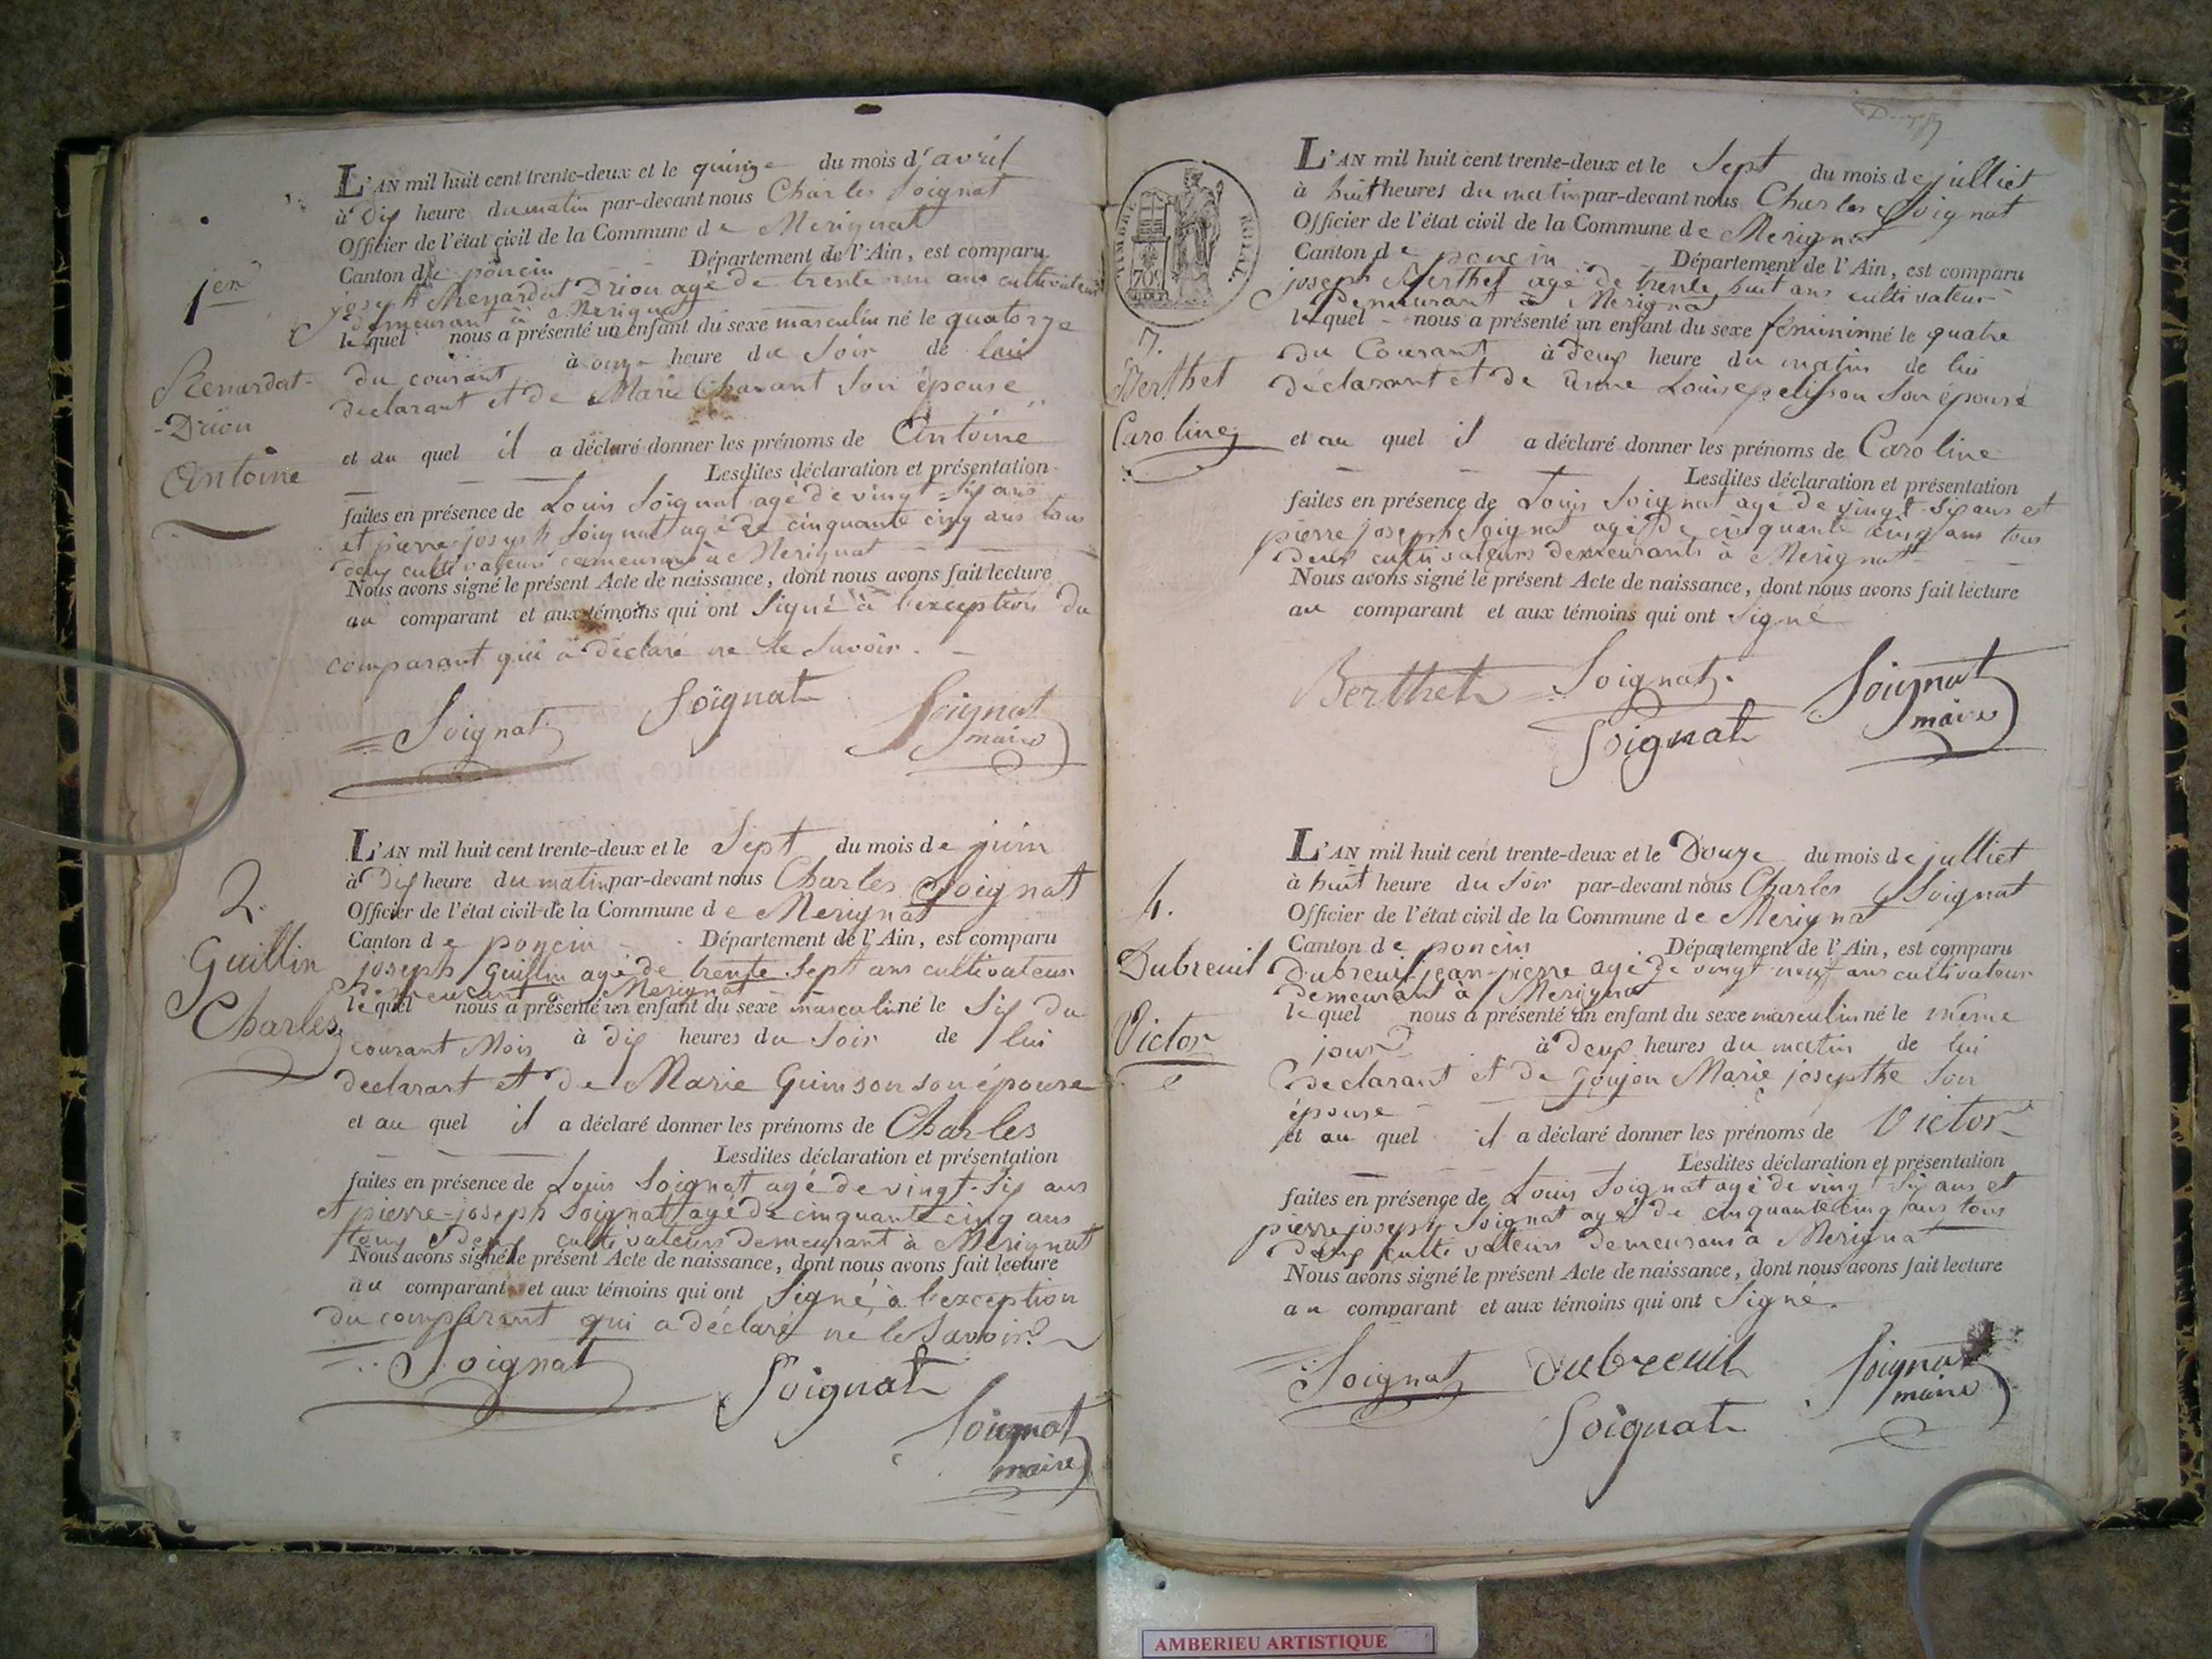 1er
Renardat-
-Driou
Antoine
L'AN mil huit cent trente-deux et le quinze du mois d'avril
à dix heure du matin par-devant nous Charles Soignat
Officier de l'état civil de la Commune de Merignat
Canton de poncin Département de l'Ain, est comparu
joseph Renardat Driou agé de trente un ans cultivateur
demeurant à Merignat
lequel nous a présenté un enfant du sexe masculin né le quatorze
du courant à onze heure du Soir de lui
declarant et de Marie Chavant Son épouse
et au quel il a déclaré donner les prénoms de Antoine
Lesdites déclaration et présentation
faites en présence de Louis Soignat agé de vingt-six ans
et pierre-joseph Soignat agé de cinquante cinq ans tous
deux cultivateurs demeurans à Merignat
Nous avons signé le présent Acte de naissance, dont nous avons fait lecture
au comparant et aux témoins qui ont Signé à l'exception du
comparant qui a déclaré ne le Savoir.
Soignat Soignat Soignat
maire
2.
Guillin
Charles
L'AN mil huit cent trente-deux et le Sept du mois de juin
à Dix heure du matin par-devant nous Charles Soignat
Officier de l'état civil de la Commune de Merignat
Canton de poncin Département de l'Ain, est comparu
joseph Guillin agé de trente Sept ans cultivateur
Demeurant à Merignat
lequel nous a présenté un enfant du sexe masculin né le Six du
courant Mois à dix heures du Soir de lui
declarant et de Marie Guinson son épouse
et au quel il a déclaré donner les prénoms de Charles
Lesdites déclaration et présentation
faites en présence de Louis Soignat agé de vingt-Six ans
et pierre-joseph Soignat agé de cinquante cinq ans
tous deux cultivateurs demeurant à Merignat
Nous avons signé le présent Acte de naissance, dont nous avons fait lecture
au comparant et aux témoins qui ont Signé à l'exception
du comparant qui a déclaré ne le Savoir.
Soignat Soignat
Soignat
maire
TIMBRE ROYAL
70c
Berthet
Caroline
L'AN mil huit cent trente-deux et le Sept du mois de julliet
à huit heures du matin par-devant nous Charles Soignat
Officier de l'état civil de la Commune de Merignat
Canton de poncin Département de l'Ain, est comparu
joseph Berthet agé de trente huit ans cultivateur
Demeurant à Merignat
lequel nous a présenté un enfant du sexe féminin né le quatre
du Courant à deux heure du matin de lui
déclarant et de anne Louise pelisson Son épouse
et au quel il a déclaré donner les prénoms de Caroline
Lesdites déclaration et présentation
faites en présence de Louis Soignat agé de vingt-Six ans et
pierre joseph Soignat agé de cinquante cinq ans tous
Deux cultivateurs demeurants à Merignat
Nous avons signé le présent Acte de naissance, dont nous avons fait lecture
au comparant et aux témoins qui ont Signé
Berthet Soignat Soignat
maire
Soignat
4.
Dubreuil
Victor
L'AN mil huit cent trente-deux et le Douze du mois de julliet
à huit heure du Soir par-devant nous Charles Soignat
Officier de l'état civil de la Commune de Merignat
Canton de poncin Département de l'Ain, est comparu
Dubreuil jean-pierre agé de vingt neuf ans cultivateur
demeurant à Merignat
lequel nous a présenté un enfant du sexe masculin né le même
jour à deux heures du matin de lui
declarant et de goujon Marie josepthe Son
épouse
et au quel il a déclaré donner les prénoms de Victor
Lesdites déclaration et présentation
faites en présence de Louis Soignat agé de vingt Six ans et
pierre joseph Soignat agé de cinquante cinq ans tous
deux cultivateurs demeurans à Merignat
Nous avons signé le présent Acte de naissance, dont nous avons fait lecture
au comparant et aux témoins qui ont Signé.
Soignat dubreuil Soignat
maire
Soignat
AMBERIEU ARTISTIQUE